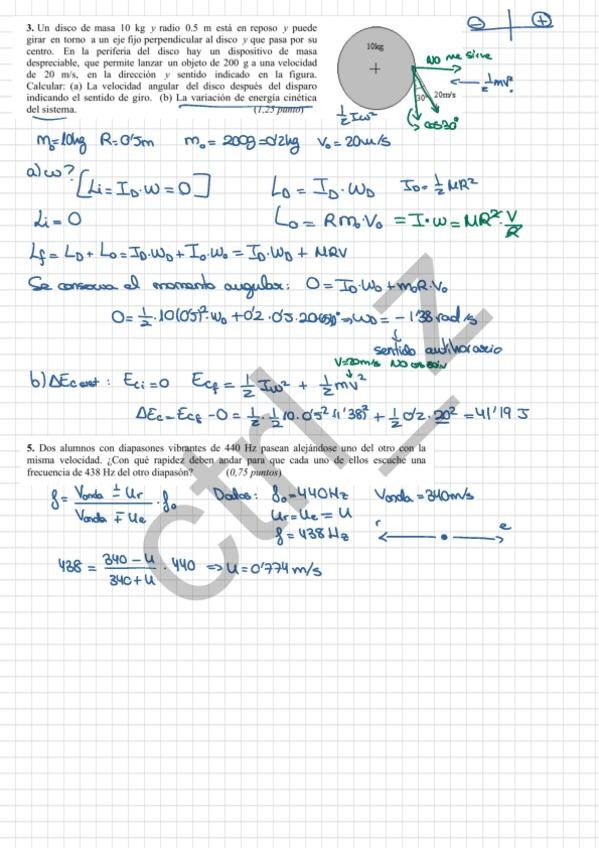 3. Un disco de masa 10 kg y radio 0.5 m está en reposo y puede
girar en torno a un eje fijo perpendicular al disco y que pasa por su
centro. En la periferia del disco hay un dispositivo de masa
despreciable, que permite lanzar un objeto de 200 g a una velocidad
de 20 m/s, en la dirección y sentido indicado en la figura.
Calcular: (a) La velocidad angular del disco después del disparo
indicando el sentido de giro. (b) La variación de energía cinética
del sistema. (1,25 punto)
- +
10kg
+
NO me sirve
½mv²
30º 20m/s
cos30º
½Iω²
m_D=10kg R=0'5m m₀=200g=0'2kg V₀=20m/s
a) ω? [Li=I_D·ω=0] L_D=I_D·ω_D I_D=½MR²
Li=0 L₀=R m₀·V₀ =I·ω=MR²·V/R
L_f=L_D+L₀=I_D·ω_D+I₀·ω₀=I_D·ω_D+MRV
Se conserva el momento angular: 0=I_D·ω_D+m₀R·V₀
sentido antihorario
V=20m/s NO cos sin
b) ΔEc : Eci=0 Ecf=½Iω²+½mv²
ΔEc=Ecf-0=½·½10·0'5²·1'38²+½0'2·20²=41'19 J
5. Dos alumnos con diapasones vibrantes de 440 Hz pasean alejándose uno del otro con la
misma velocidad. ¿Con qué rapidez deben andar para que cada uno de ellos escuche una
frecuencia de 438 Hz del otro diapasón? (0,75 puntos)
f=(Vonda ± Ur)/(Vonda ∓ Ue)·f₀ Datos: f₀=440Hz Vonda=340m/s
Ur=Ue=U
f=438Hz
r e
438=(340-U)/(340+U)·440 ⇒U=0'774m/s
ctrl_z